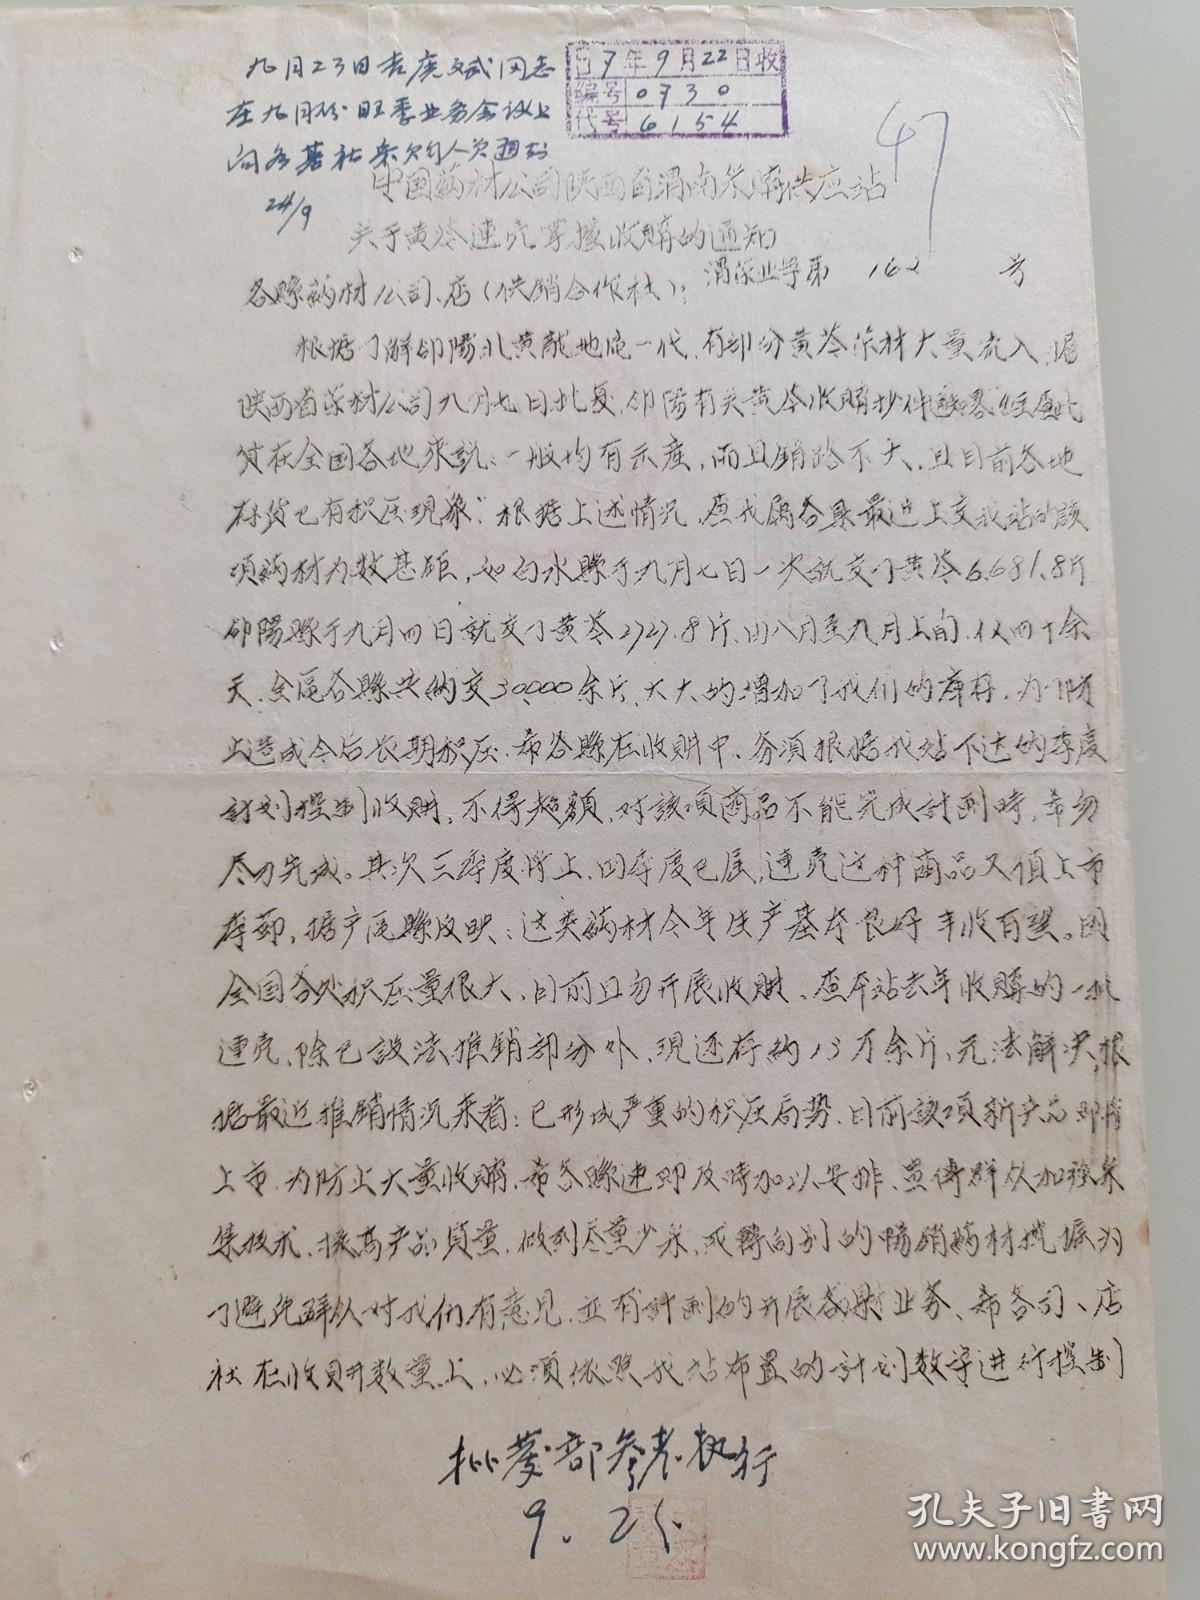 九月23日告庚文武同志
在九月份旺季业务会议上
向各基社采购人员通知
24/9
7年9月22日收
编号 0730
代号 6154
47
中国药材公司陕西省渭南采购供应站
关于黄芩連壳掌握收購的通知
渭采业字第 162 号
各縣药材公司、店(供销合作社):
根据了解郃陽北黄龍地区一代,有部分黄芩药材大量流入,据
陕西省药材公司九月七日批复,郃陽有关黄芩收購抄件
货在全国各地来说:一般均有示产,而且銷路不大,且目前各地
存货已有积压現象"。根据上述情况,查我屬各县最近上交我站的該
項药材为数甚鉅,如白水縣于九月七日一次就交了黄芩6.681.8斤
郃陽縣于九月四日就交了黄芩2727.8斤,由八月至九月上旬,仅四十余
天,全区各縣共約交30000余斤,大大的增加了我们的庫存,为了防
止造成今后长期积压,希各縣在收購中,务須根据我站下达的季度
計划控制收購,不得超額,对該項商品不能完成計划時,希勿
尽力完成。其次三季度行上,四季度已届,連壳这种商品又值上市
季节,据产区縣反映:这类药材今年生产基本良好丰收有望。因
全国各处积压量很大,目前且勿开展收購,查本站去年收購的一批
連壳,除已設法推銷部分外,現还存約13万余斤,无法解决,根
据最近推銷情况来看:已形成严重的积压局势,目前該項新产品即将
上市,为防止大量收購,希各縣速即及時加以安排,宣傳群众加强采
集技术,提高产品質量,做到尽量少采,或轉向别的暢銷药材挖掘为
了避免群众对我们有意見,並有計划的开展收購业务,希各司、店
社在收購数量上,必須依照我站布置的計划数字進行控制
批发部参考执行
9.25.
孔夫子旧书网
www.kongfz.com